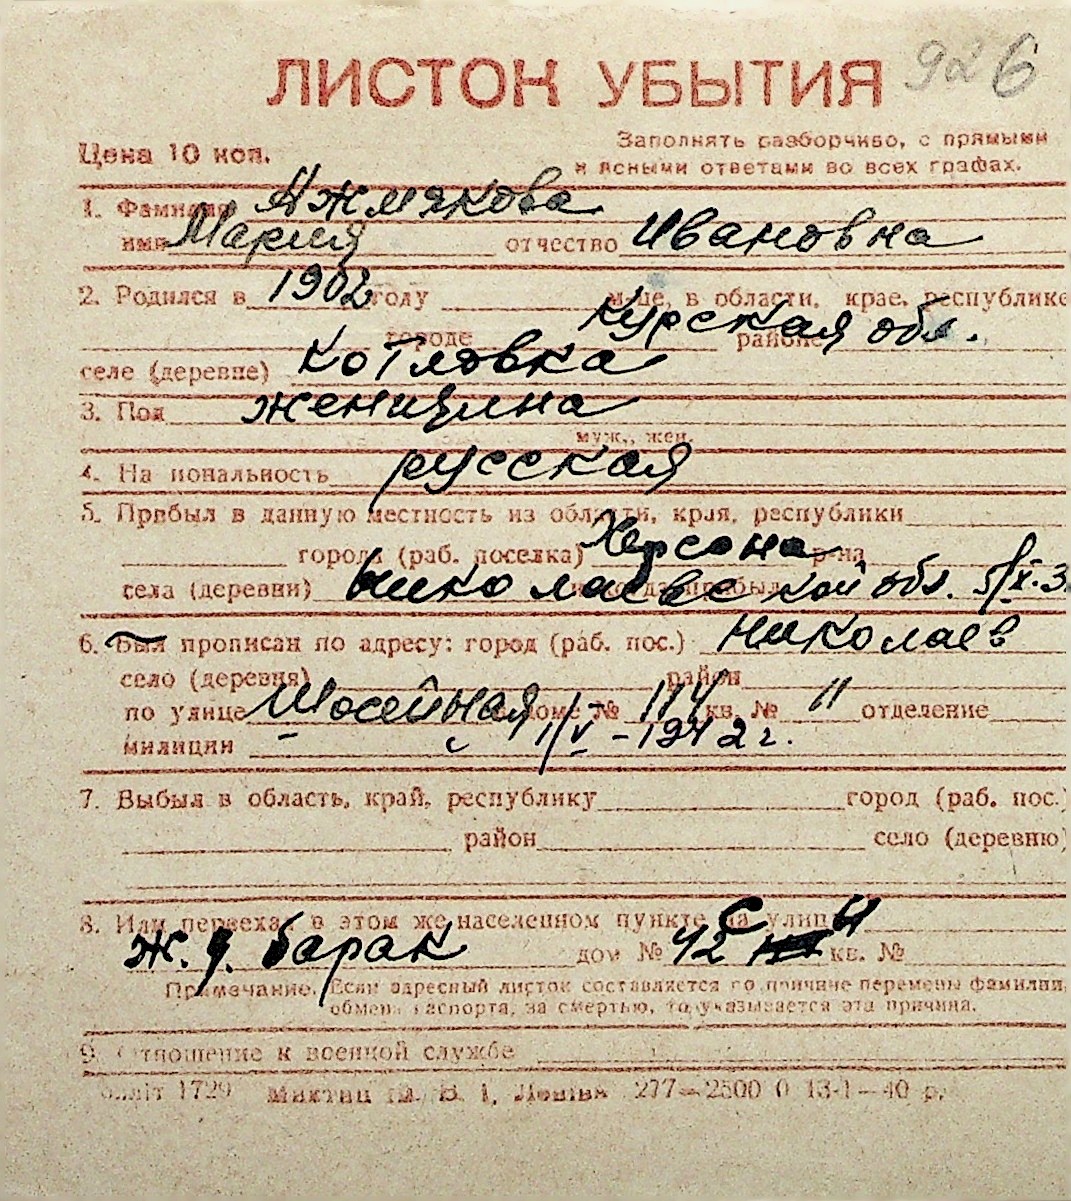 ЛИСТОК УБЫТИЯ 926
Цена 10 коп.
Заполнять разборчиво, с прямыми
и ясными ответами во всех графах.
1. Фамилия Ажмякова
имя Мария отчество Ивановна
2. Родился в 1902 году м-це, в области, крае, республике
Курская обл.
городе районе
селе (деревне) Котловка
3. Пол женщина
муж., жен.
4. Национальность русская
5. Прибыл в данную местность из области, края, республики
города (раб. поселка) Херсона р-на
села (деревни) Николаевской обл.
6. Был прописан по адресу: город (раб. пос.) Николаев
село (деревня) район
по улице Шосейная доме № 114 кв. № 11 отделение
милиции с 1/V-1942 г.
7. Выбыл в область, край, республику город (раб. пос.)
район село (деревню)
8. Или переехал в этом же населенном пункте на улицу
Ж. д. барак дом № 42 кв. №
Примечание. Если адресный листок составляется по причине перемены фамилии,
обмена паспорта, за смертью, то указывается эта причина.
9. Отношение к военной службе
1729 277—2500 0 13-1—40 р.